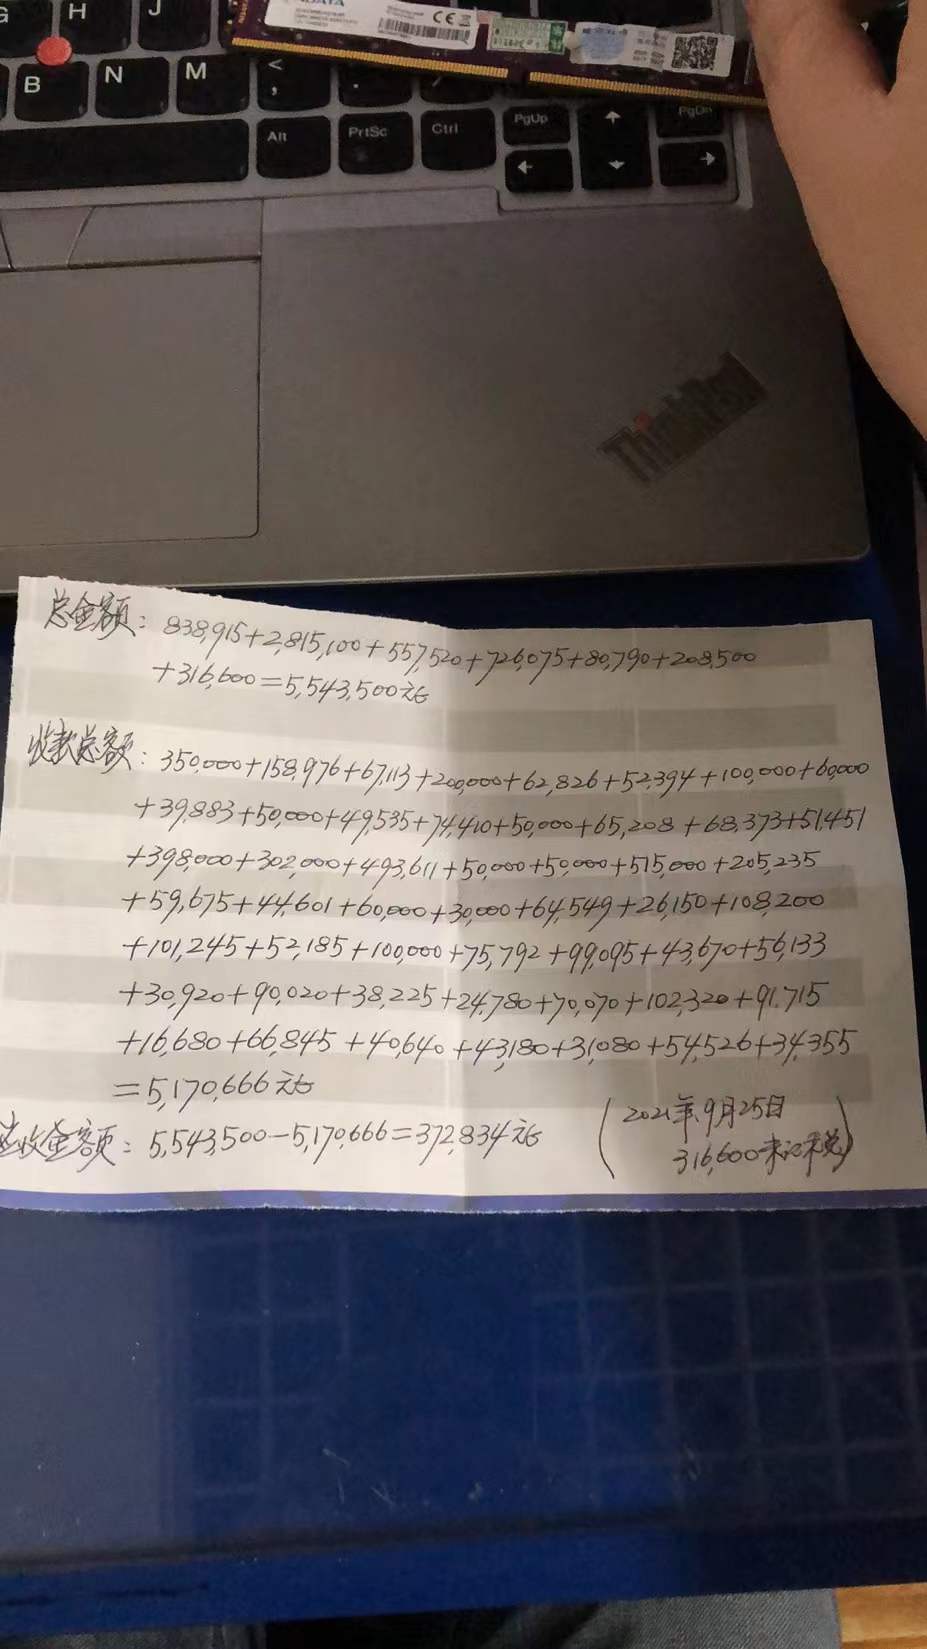 G H J
B N M < ,
Alt PrtSc Ctrl PgUp PgDn
ADATA
CE
ThinkPad
总金额: 838,915+2,815,100+557,520+726,075+80,790+208,500
+316,600=5,543,500元
收款总额: 350,000+158,976+67,113+200,000+62,826+52,394+100,000+60,000
+39,883+50,000+49,535+74,410+50,000+65,208+68,373+51,451
+398,000+302,000+493,611+50,000+50,000+515,000+205,235
+59,675+44,601+60,000+30,000+64,549+26,150+108,200
+101,245+52,185+100,000+75,792+99,095+43,670+56,133
+30,920+90,020+38,225+24,780+70,070+102,320+91,715
+16,680+66,845+40,640+43,180+31,080+54,526+34,355
=5,170,666元
应收金额: 5,543,500-5,170,666=372,834元
(2021年9月25日
316,600未记税)